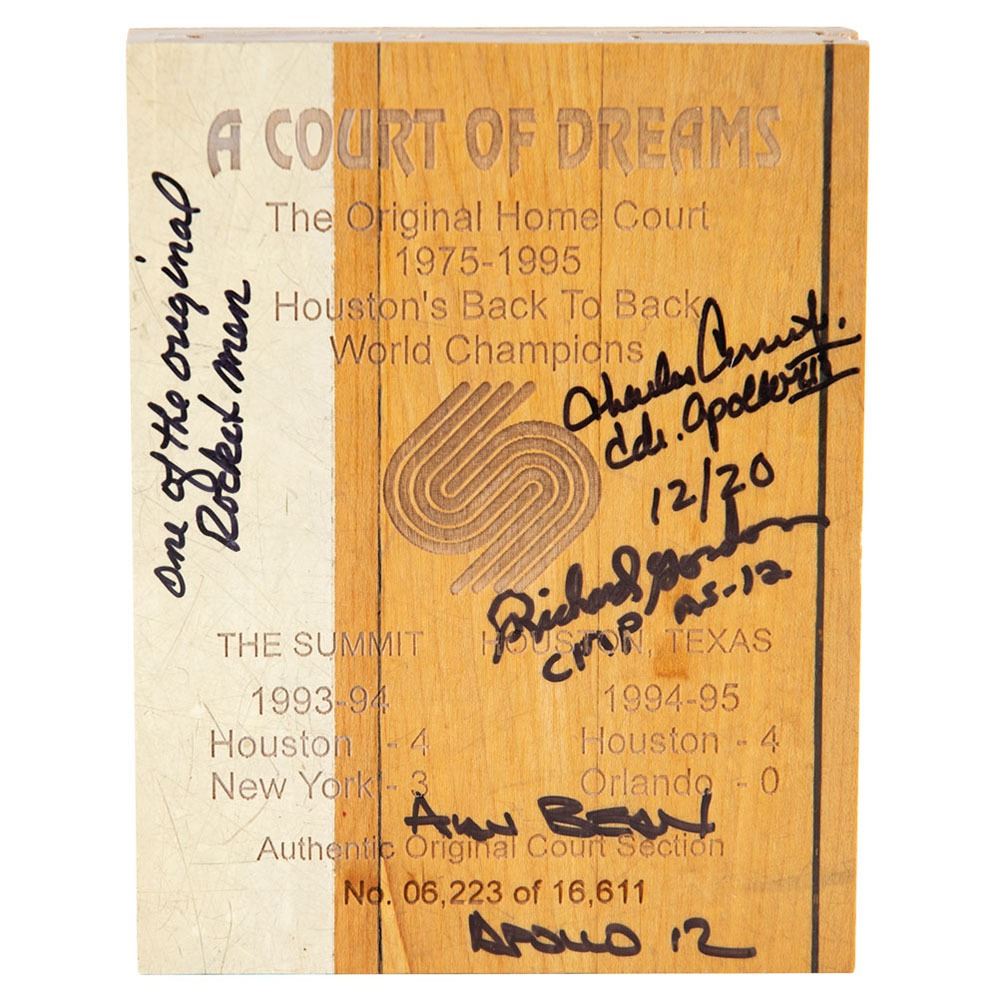 A COURT OF DREAMS
The Original Home Court
1975-1995
Houston's Back To Back
World Champions
one of the original
Rocket men
Charles Conrad Jr.
Cdr. Apollo XII
12/20
Richard Gordon
CMP AS-12
THE SUMMIT HOUSTON, TEXAS
1993-94 1994-95
Houston - 4 Houston - 4
New York - 3 Orlando - 0
Alan BEAN
Authentic Original Court Section
No. 06,223 of 16,611
APOLLO 12